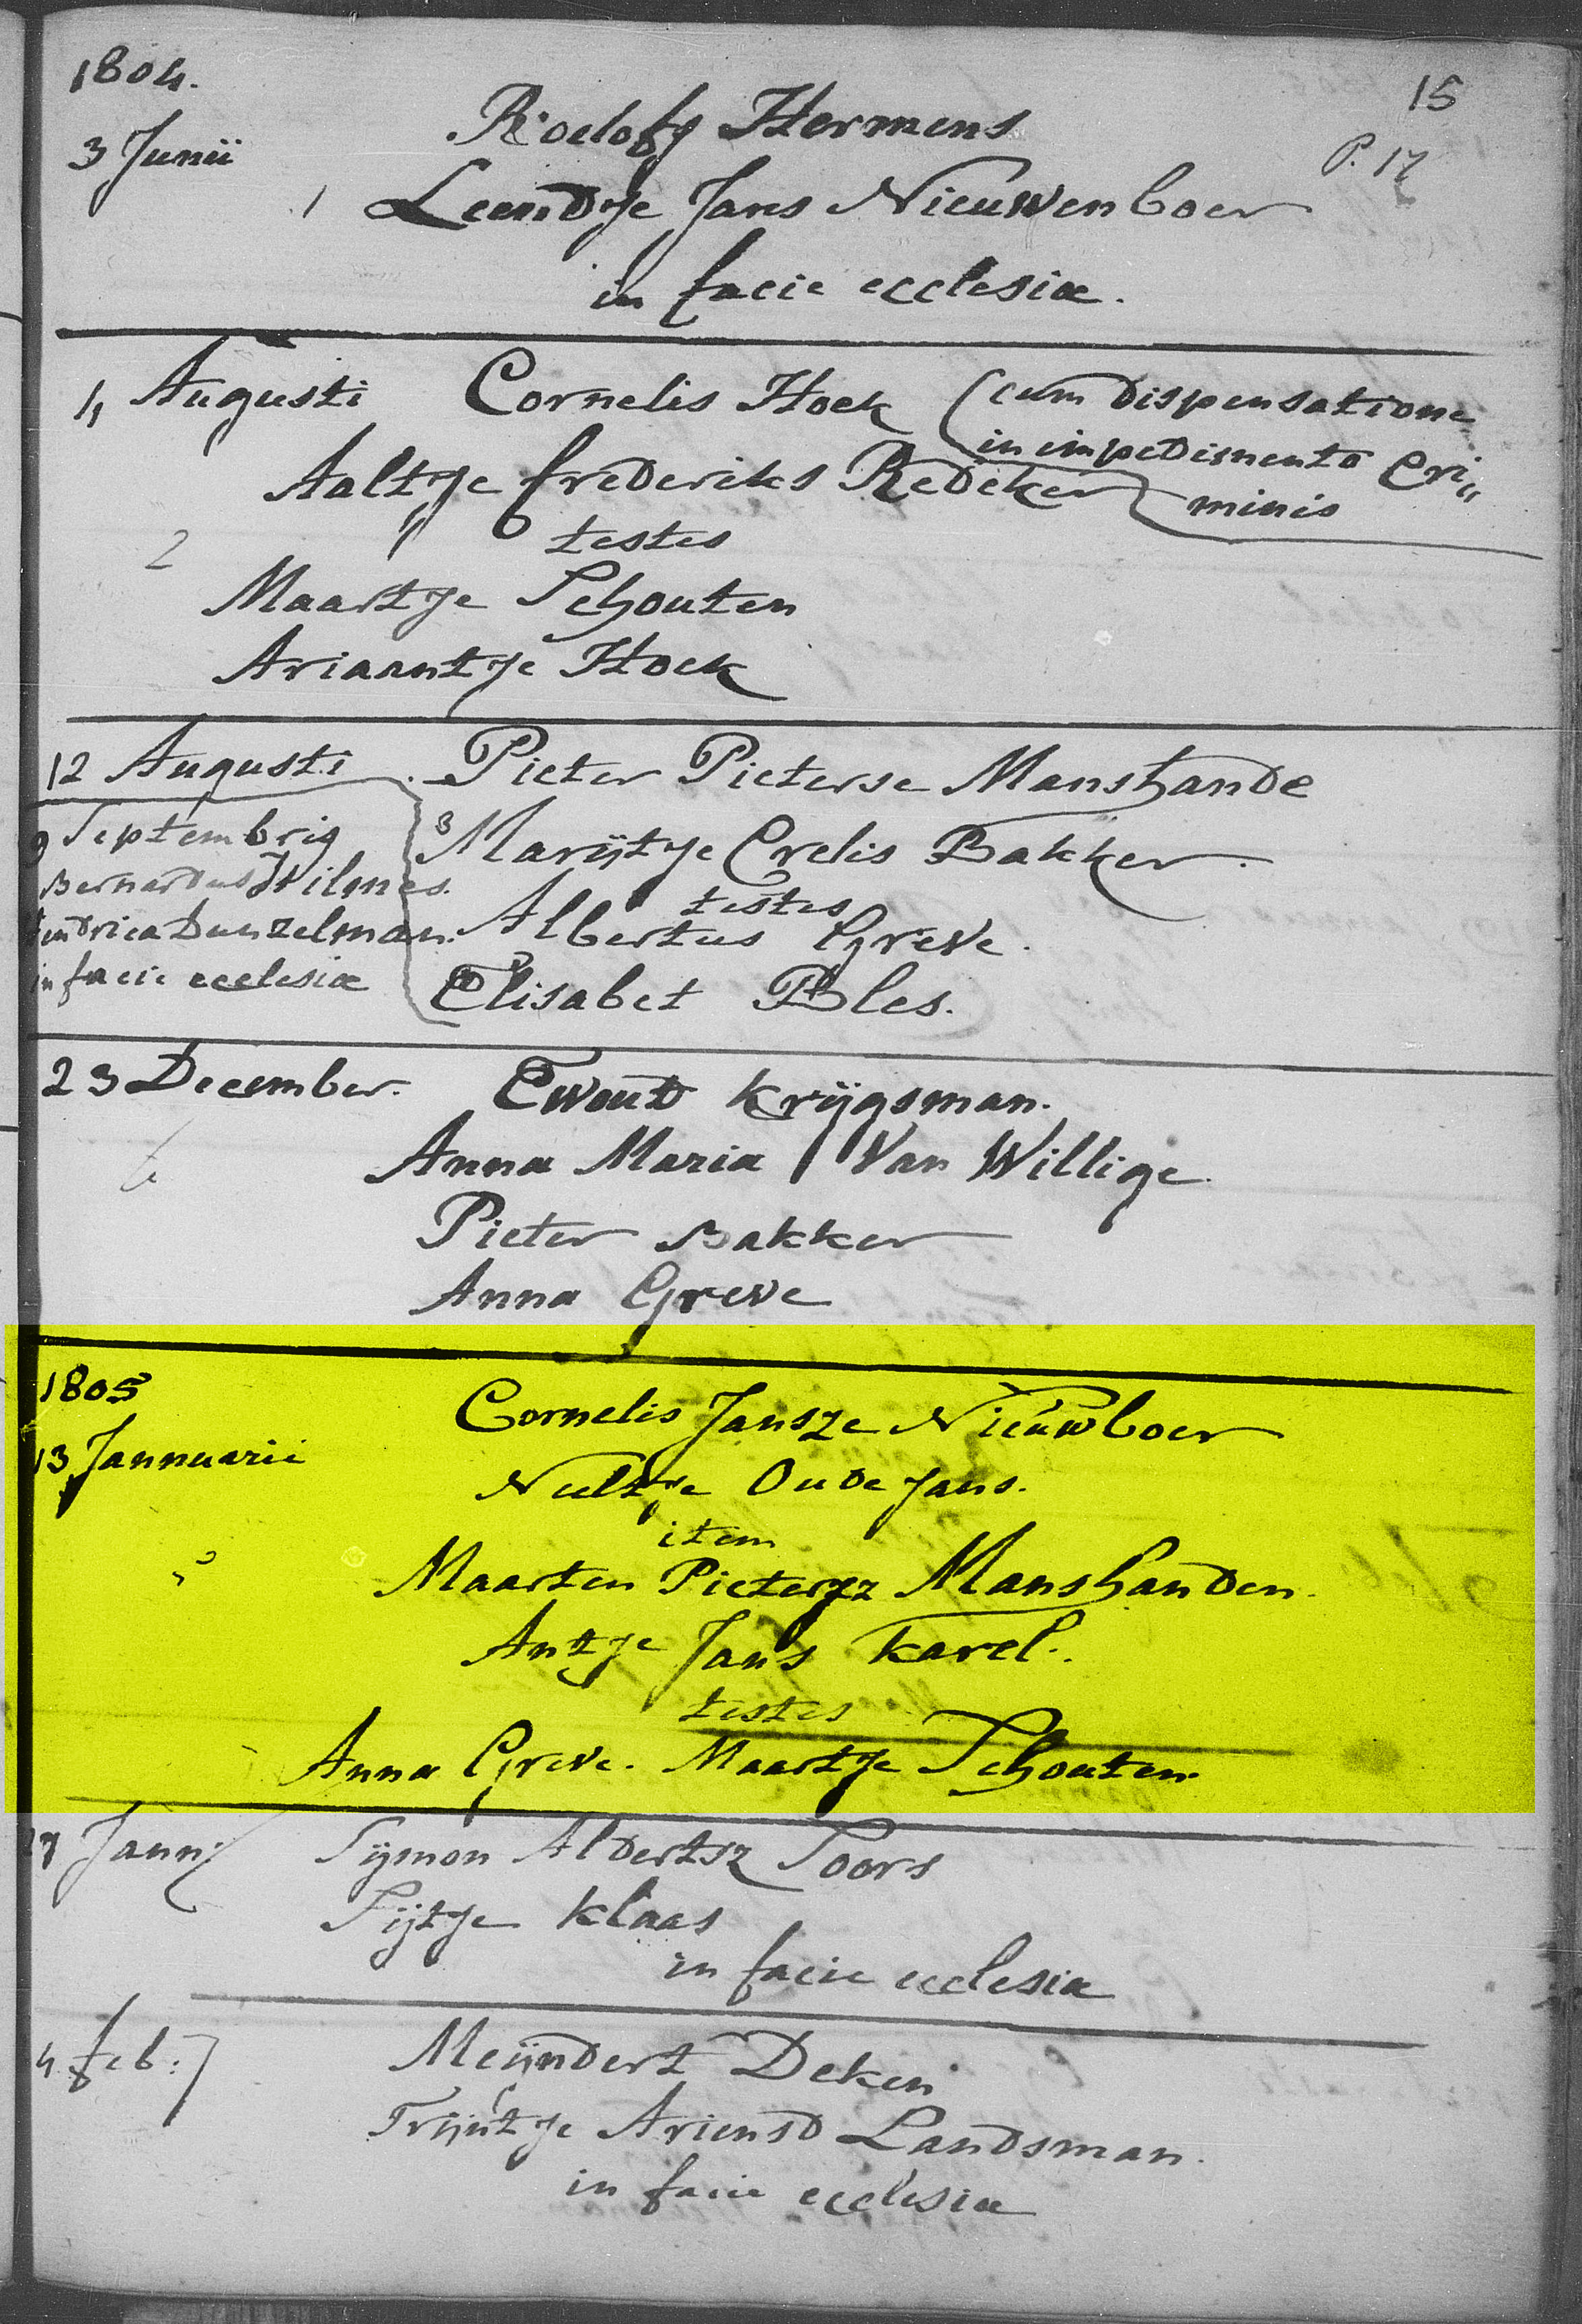 1804.
15
3 Junii
Roelofs Hermens
P. 17
1 Leendje Jans Nieuwenboer
in facie ecclesiæ.
4 Augusti Cornelis Hoek (cum dispensatione
in impedimento Cri„
Aaltje frederiks Redeker minis
2 testes
Maartje Schouten
Ariaantje Hoek
12 Augusti Pieter Pieterse Manshande
3 Marijtje Crelis Bakker.
testes
Albertus Greve.
Elisabet Bles.
9 Septembris
Bernardus Hilmes.
Hendrica Dunzelman.
in facie ecclesiæ
23 December. Ewout Krijgsman.
Anna Maria Van Willige.
Pieter Bakker
Anna Greve
1805
13 Jannuarii
Cornelis Jansze Nieuwboer
Neeltje Oudejans.
item
Maarten Pietersz Manshanden.
Antje Jans Karel.
testes
Anna Greve. Maartje Schouten.
Jann: Sijmon Aldertsz Soors
Sijtje Klaas
in facie ecclesiæ
4 feb: Meijndert Deken
Trijntje Ariensd Landsman.
in facie ecclesiæ